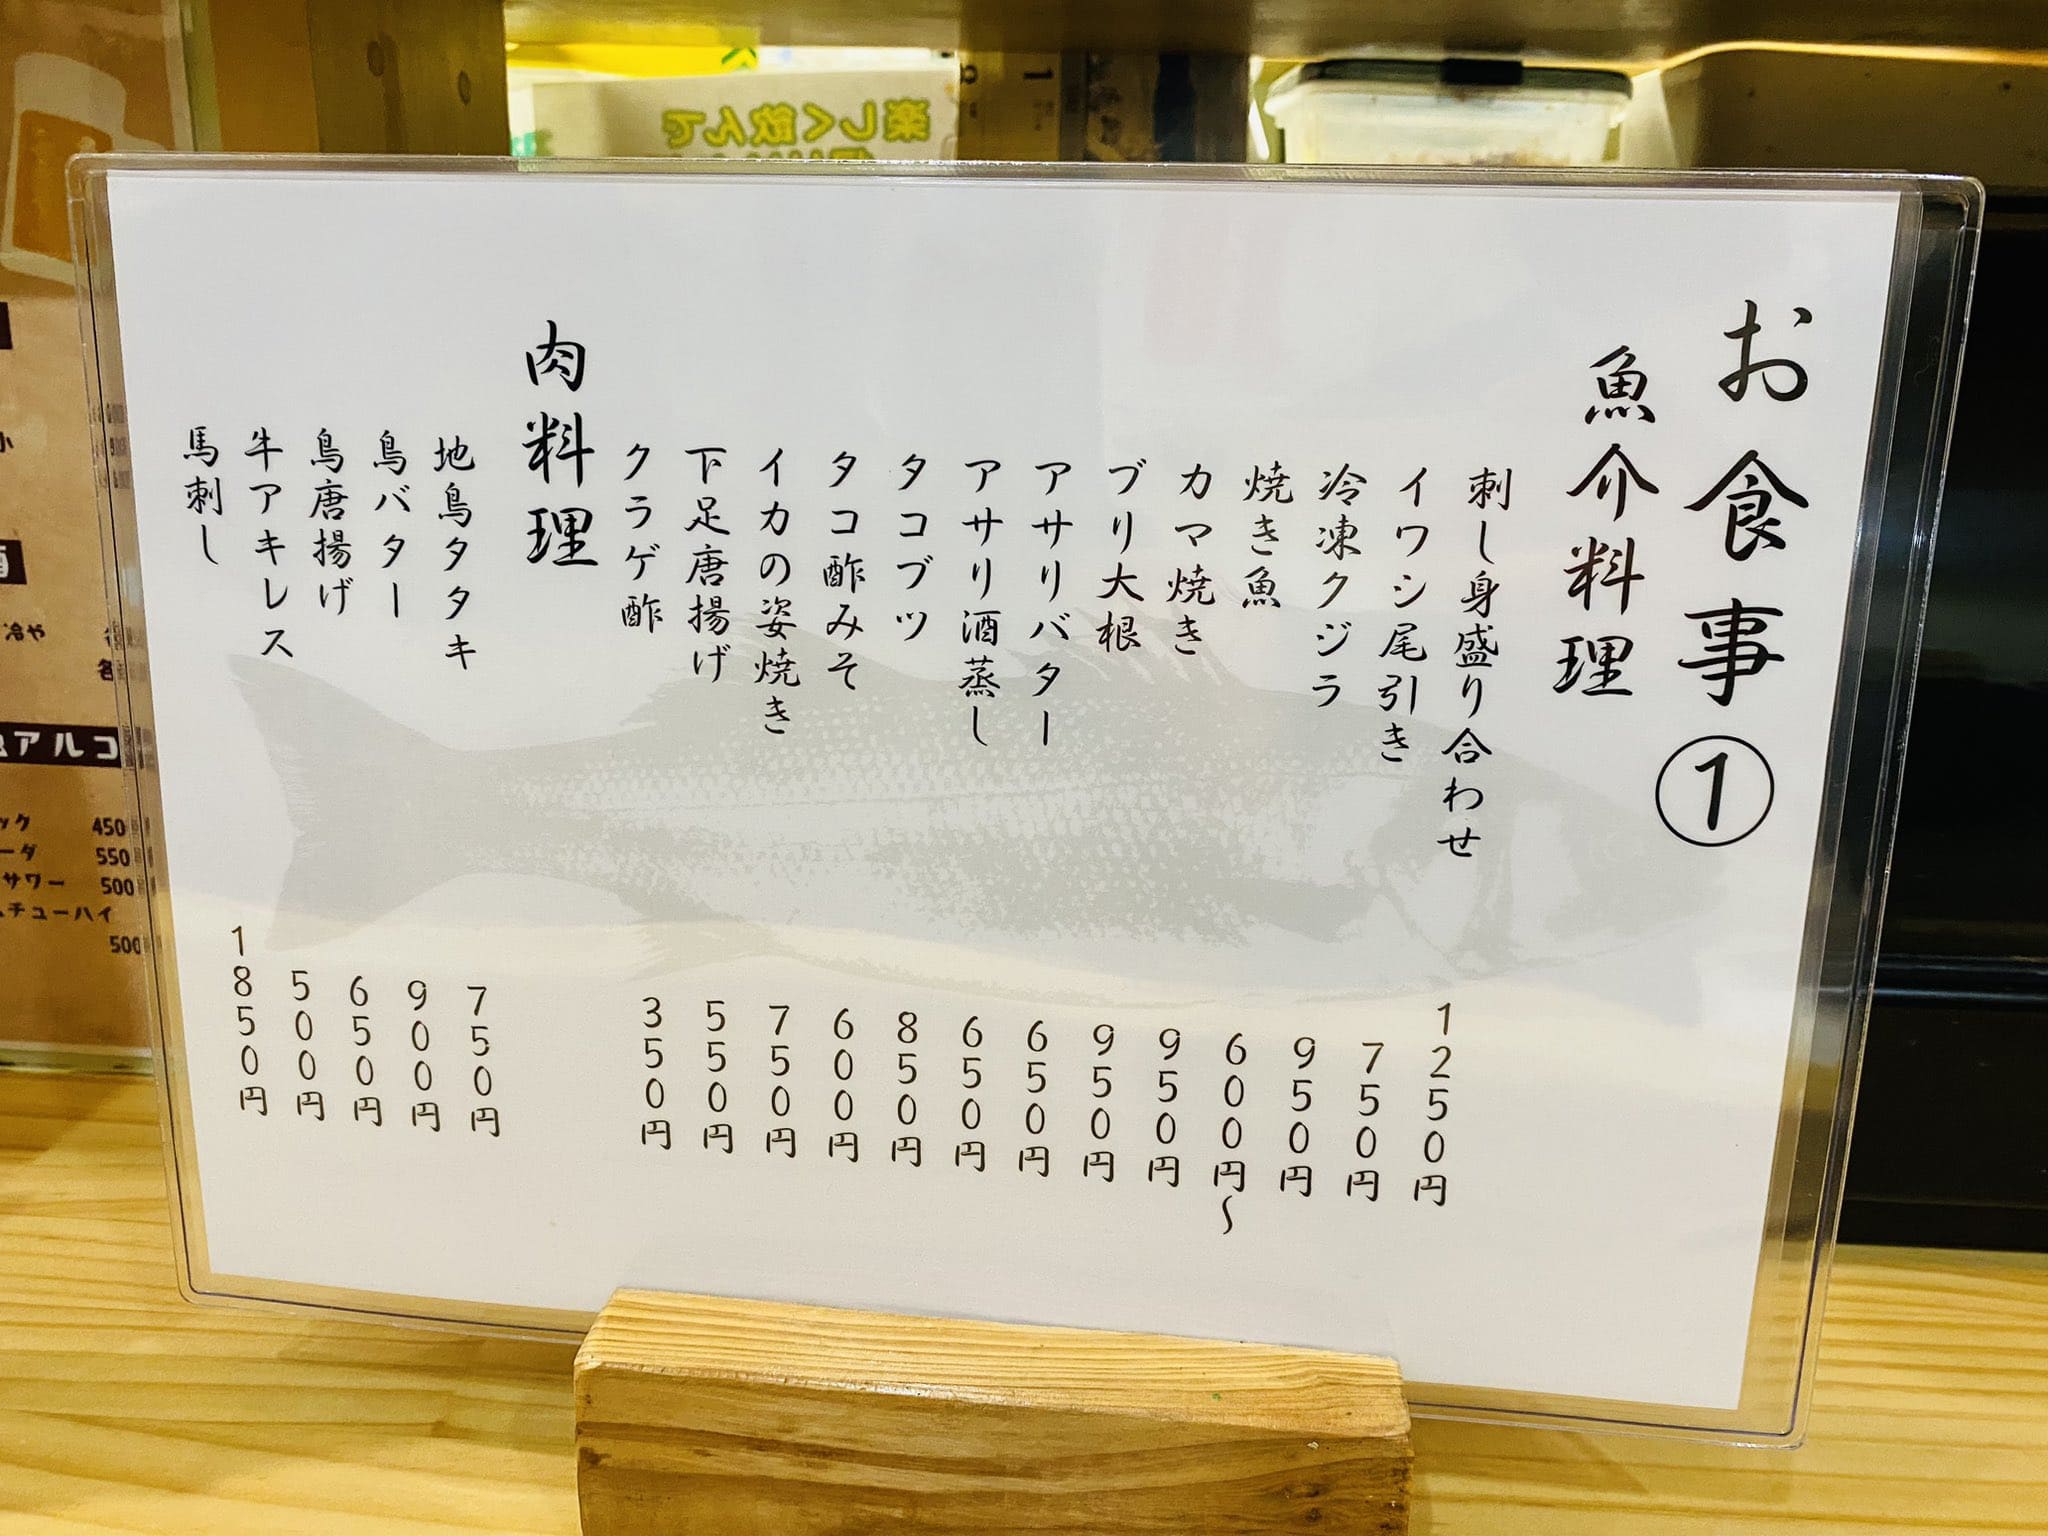 お食事①
魚介料理
刺し身盛り合わせ 1250円
イワシ尾引き 750円
冷凍クジラ 950円
焼き魚 600円〜
カマ焼き 950円
ブリ大根 950円
アサリバター 650円
アサリ酒蒸し 650円
タコブツ 850円
タコ酢みそ 600円
イカの姿焼き 750円
下足唐揚げ 550円
クラゲ酢 350円
肉料理
地鳥タタキ 750円
鳥バター 900円
鳥唐揚げ 650円
牛アキレス 500円
馬刺し 1850円
楽しく飲んで
冷や
アルコ
ック 450
ーダ 550
サワー 500
チューハイ
500